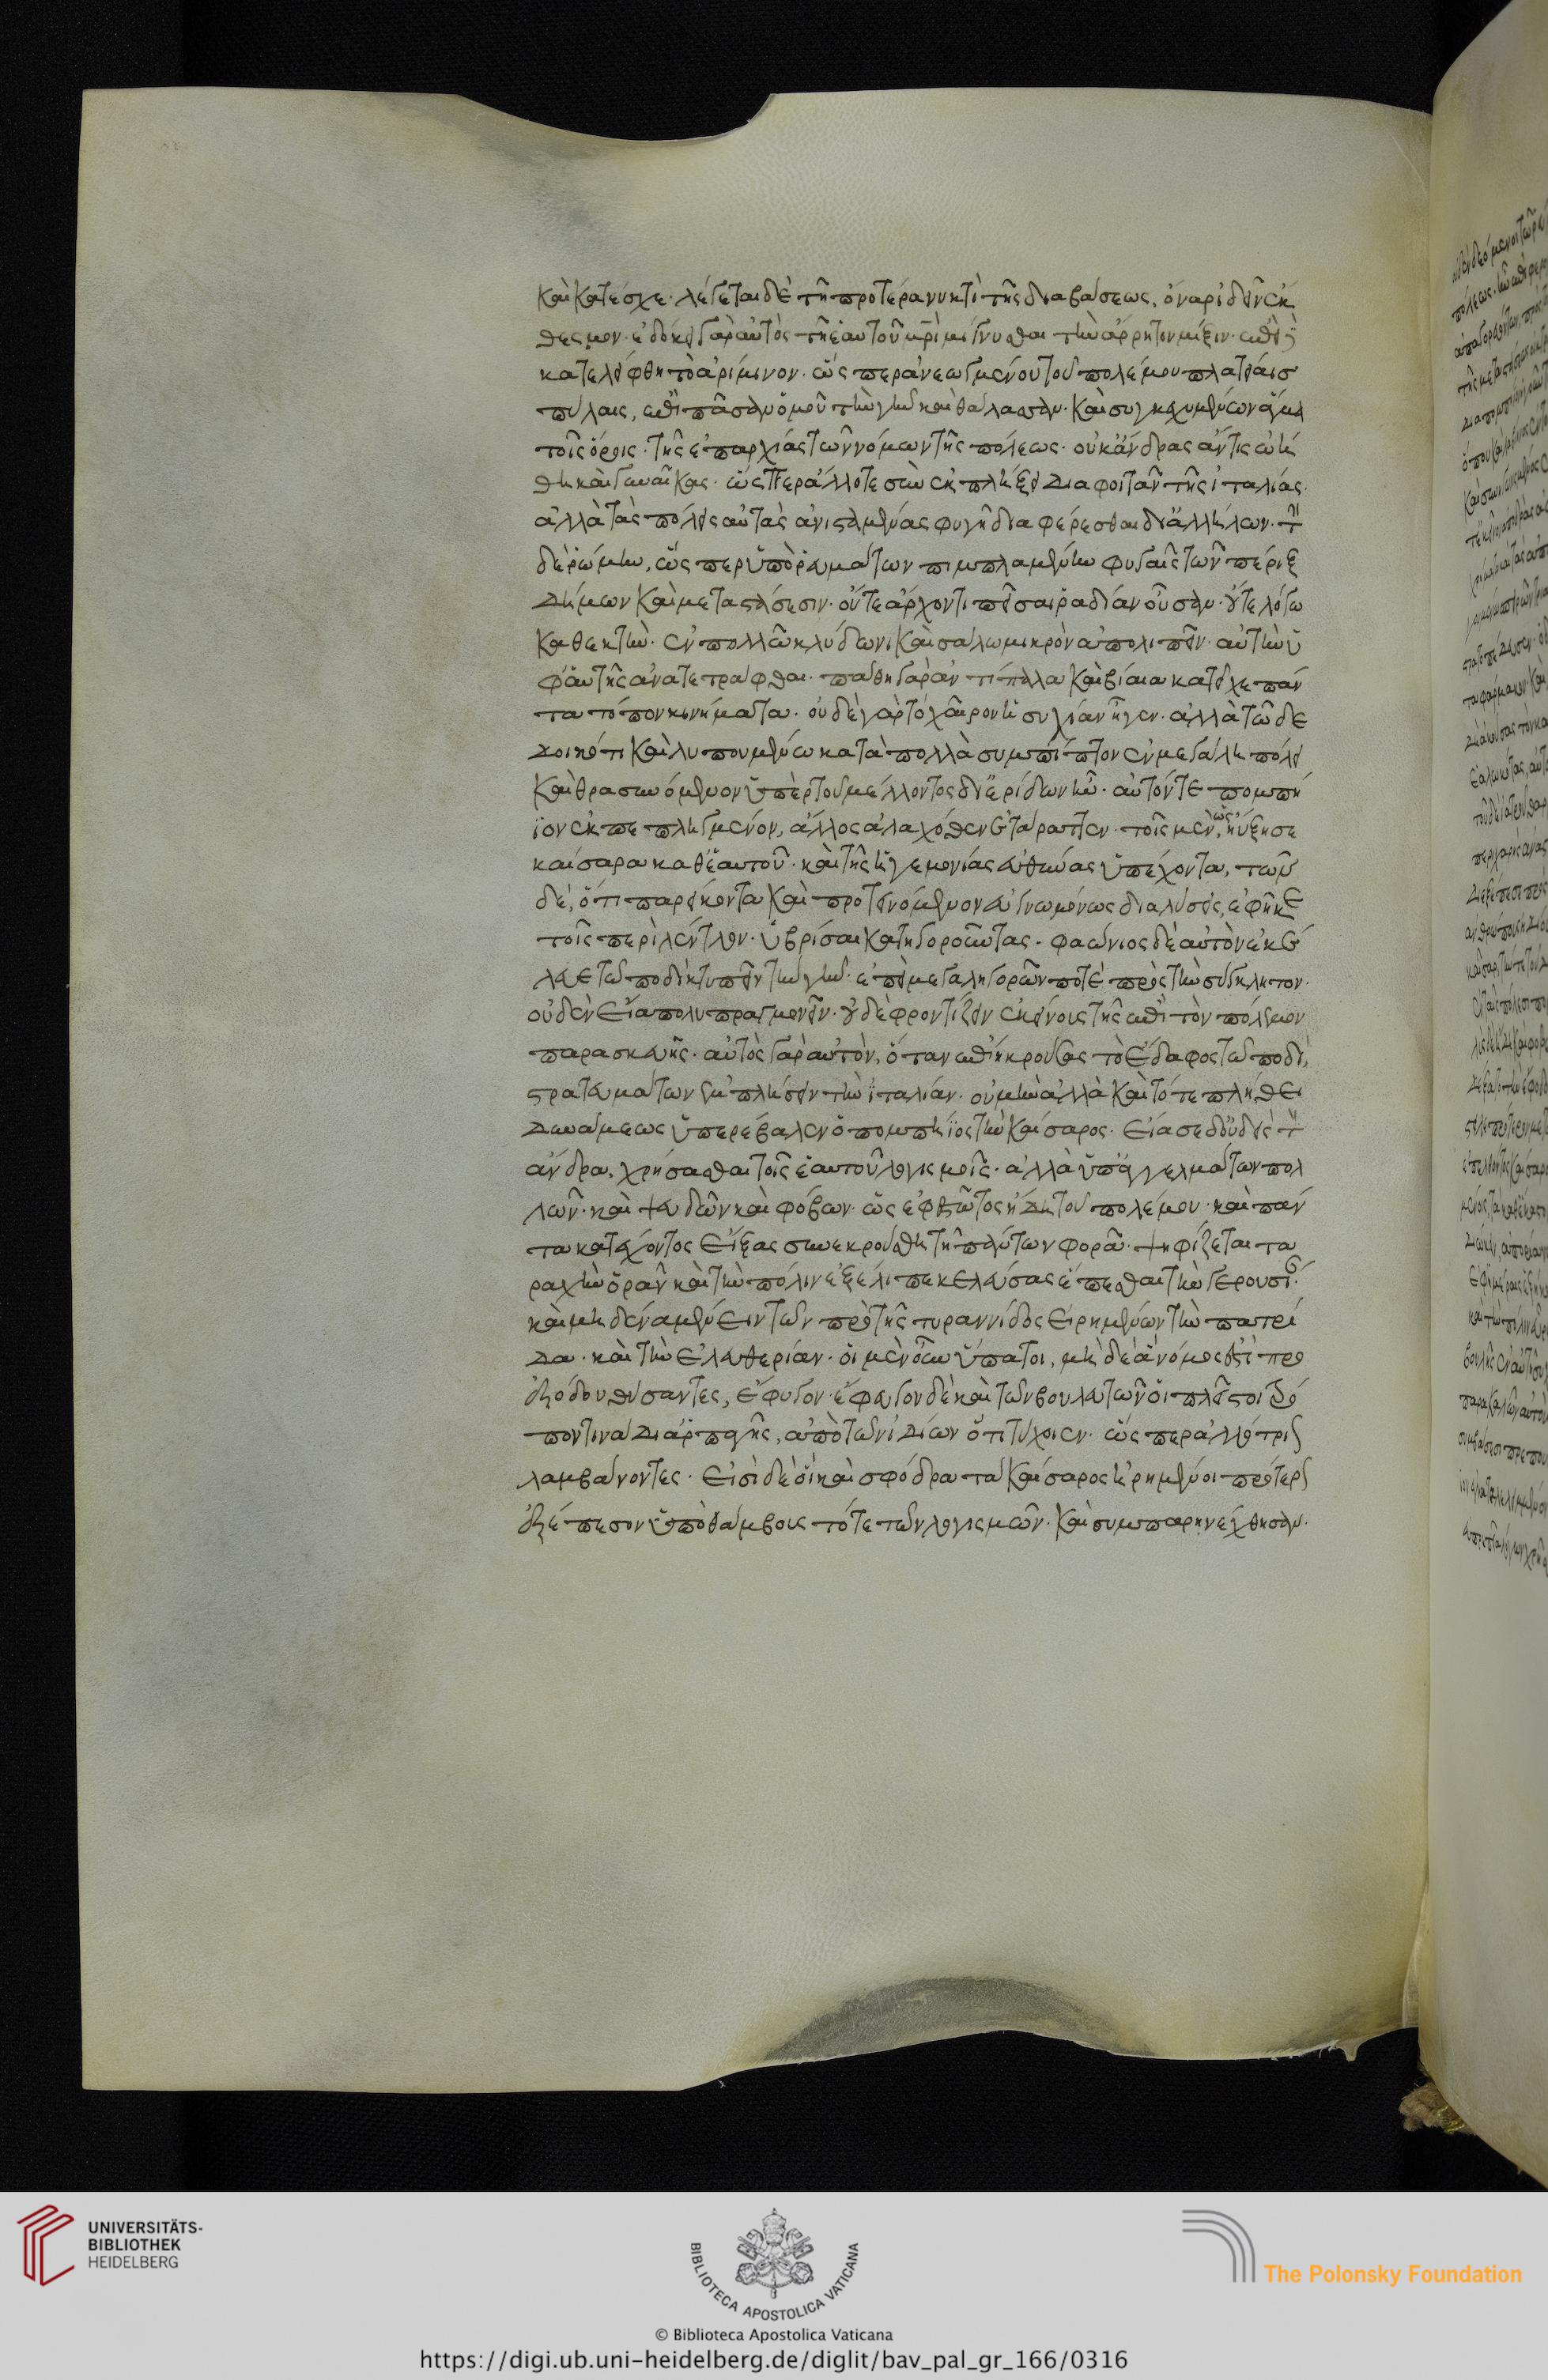 καὶ κατέσχε· λέγεται δὲ τῆ προτέρα νυκτὶ τῆς διαβάσεως, ὄναρ ἰδεῖν ἐκ
θεσμον· ἐδόκει γὰρ αὐτὸς τῆ ἑαυτοῦ μρὶ μίγνυσθαι τὴν ἄρρητον μίξιν· ἐπεὶ δὲ
κατελείφθη τὸ ἀρίμινον· ὥσπερ ἀνεωγμένου τοῦ πολέμου πλατείαισ
πύλαις, ἐπὶ πᾶσαν ὁμοῦ τὴν γῆν καὶ θάλασσαν· καὶ συγκεχυμένων ἅμα
τοῖς ὅροις· τῆς ἐπαρχίας τῶν νόμων τῆς πόλεως· οὐκ ἄνδρας ἄν τις ὠή
θη καὶ γυναῖκας· ὥσπερ ἄλλοτε σὺν ἐκπλήξει διαφοιτᾶν τῆς ἰταλίας·
ἀλλὰ τὰς πόλεις αὐτὰς ἀνισταμένας φυγῆ διαφέρεσθαι δι ἀλλήλων· τὴν
δὲ ῥώμην, ὥσπερ ὑπὸ ῥευμάτων πιμπλαμένην φυγαῖς τῶν πέριξ
δήμων καὶ μεταστάσεσιν· οὔτε ἄρχοντι πεῖσαι ῥαδίαν οὖσαν· οὔτε λόγω
καθεκτὴν· ἐν πολλῶ κλύδωνι καὶ σάλω μικρὸν ἀπολιπεῖν· αὐτὴν ὑ
φ' αὑτῆς ἀνατετράφθαι· πάθη γὰρ ἀντίπαλα καὶ βίαια κατεῖχε πάν
τα τόπον κινήματα· οὐδὲ γὰρ τὸ χαῖρον ἡσυχίαν ἦγεν· ἀλλὰ τῶ δε
δοικότι καὶ λυπουμένω κατὰ πολλὰ συμπίπτον ἐν μεγάλη πόλει
καὶ θρασυνόμενον ὑπὲρ τοῦ μέλλοντος δι ἐρίδων ἦν· αὐτόν τε πομπή
ϊον ἐκπεπληγμένον, ἄλλος ἀλαχόθεν ἐτάραττεν· τοῖς μὲν, ὡς ηὔξησε
καίσαρα καθ' ἑαυτοῦ· καὶ τῆς ἡγεμονίας εὐθύνας ὑπέχοντα, τῶν
δέ, ὅτι παρείκοντα καὶ προτεινόμενον εὐγνωμόνως διαλύσεις, ἐφῆκε
τοῖς περὶ λέντλον· ὑβρίσαι κατηγοροῦντας· φαώνιος δὲ αὐτὸν ἐκέ
λευε τῶ ποδὶ κτυπεῖν τὴν γῆν· ἐπεὶ μεγαληγορῶν ποτὲ πρὸς τὴν σύγκλητον·
οὐδὲν εἴα πολυπραγμονεῖν· οὐδὲ φροντίζειν ἐκείνους τῆς ἐπὶ τὸν πόλεμον
παρασκευῆς· αὐτὸς γὰρ αὐτὸν, ὅταν ἐπίη κρούσας τὸ ἔδαφος τῶ ποδί,
στρατευμάτων ἐμπλήσειν τὴν ἰταλίαν· οὐ μὴν ἀλλὰ καὶ τότε πλήθει
δυνάμεως ὑπερέβαλεν ὁ πομπήϊος τὴν καίσαρος· εἴασε δ' οὐδεὶς τὸν
ἄνδρα, χρήσασθαι τοῖς ἑαυτοῦ λογισμοῖς· ἀλλὰ ὑπ' ἀγγελμάτων πολ
λῶν· καὶ ψευδῶν καὶ φόβων· ὡς ἐφεστῶτος ἤδη τοῦ πολέμου· καὶ πάν
τα κατέχοντος εἴξας συνεκρούσθη τῆ πάντων φορᾶ· ψηφίζεται τα
ραχὴν ὁρᾶν καὶ τὴν πόλιν ἐξέλιπε κελεύσας ἕπεσθαι τὴν γερουσίαν·
καὶ μηδένα μένειν τῶν πρὸ τῆς τυραννίδος εἰρημένων τὴν πατρί
δα· καὶ τὴν ἐλευθερίαν· οἱ μὲν οὖν ὕπατοι, μὴ δὲ ἃ νόμος ἐστὶ πρὸ
ἐξόδου θύσαντες, ἔφυγον· ἔφευγον δὲ καὶ τῶν βουλευτῶν οἱ πλεῖστοι τρό
πον τινὰ δι ἁρπαγῆς, ἀπὸ τῶν ἰδίων ὅτι τύχοιεν· ὥσπερ ἀλλοτρίων
λαμβάνοντες· εἰσὶ δὲ οἳ καὶ σφόδρα τὰ καίσαρος ἡρημένοι πρότερον
ἐξέπεσον ὑπὸ θάμβους τότε τῶν λογισμῶν· καὶ συμπαρηνέχθησαν·
UNIVERSITÄTS-
BIBLIOTHEK
HEIDELBERG
BIBLIOTECA APOSTOLICA VATICANA
© Biblioteca Apostolica Vaticana
The Polonsky Foundation
https://digi.ub.uni-heidelberg.de/diglit/bav_pal_gr_166/0316